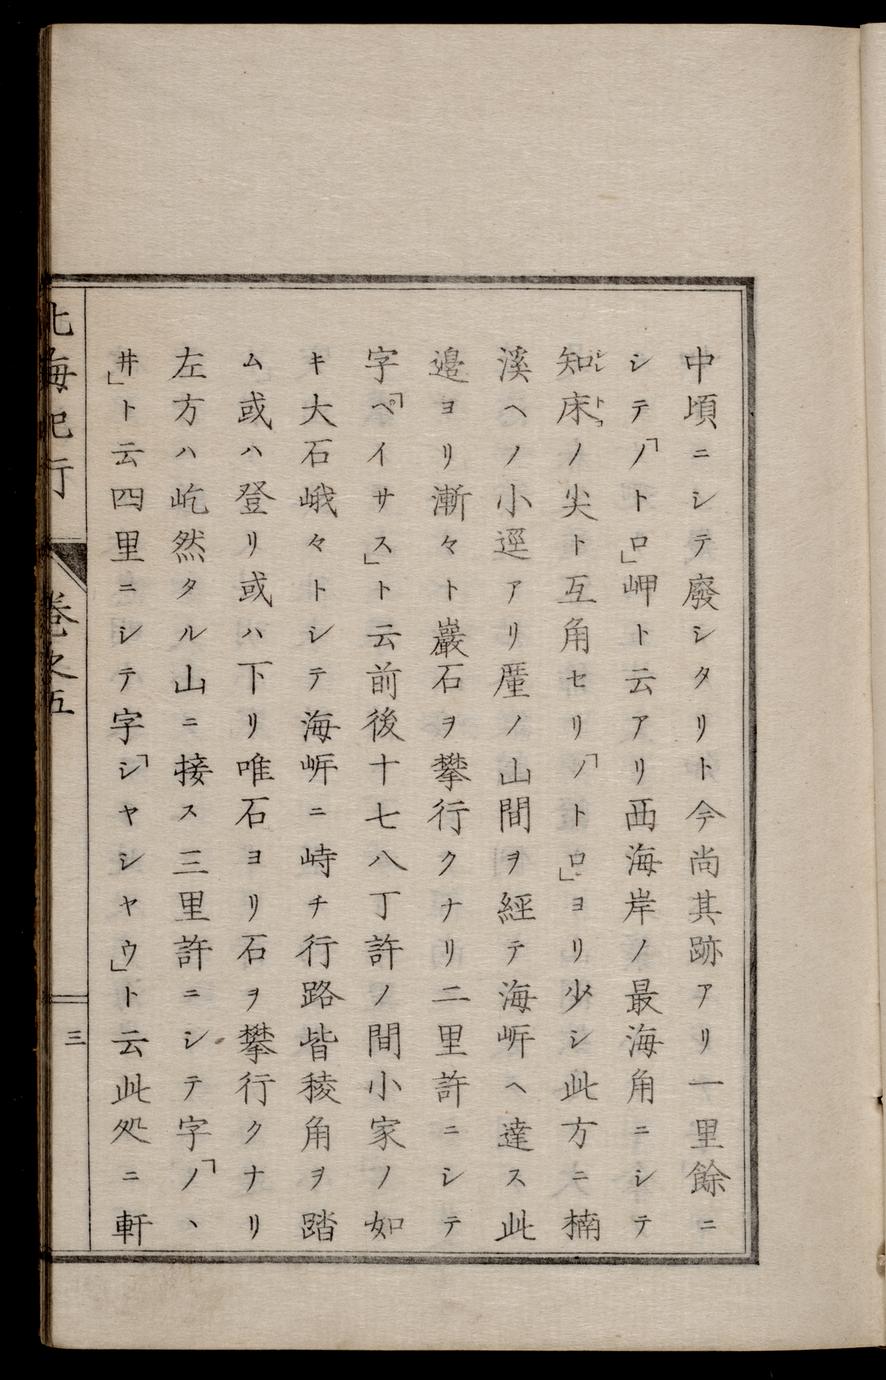 中頃ニシテ廢シタリト今尚其跡アリ一里餘ニ
シテ「ノトロ」岬ト云アリ西海岸ノ最海角ニシテ
知床ノ尖ト互角セリ「ノトロ」ヨリ少シ此方ニ楠
溪ヘノ小逕アリ厓ノ山間ヲ經テ海岍ヘ達ス此
邉ヨリ漸々ト巖石ヲ攀行クナリ二里許ニシテ
字「ペイサス」ト云前後十七八丁許ノ間小家ノ如
キ大石峨々トシテ海岍ニ峙チ行路皆稜角ヲ踏
ム或ハ登リ或ハ下リ唯石ヨリ石ヲ攀行クナリ
左方ハ屹然タル山ニ接ス三里許ニシテ字「ノヽ
井」ト云四里ニシテ字「シヤシヤウ」ト云此処ニ軒
北海紀行 卷之五 三